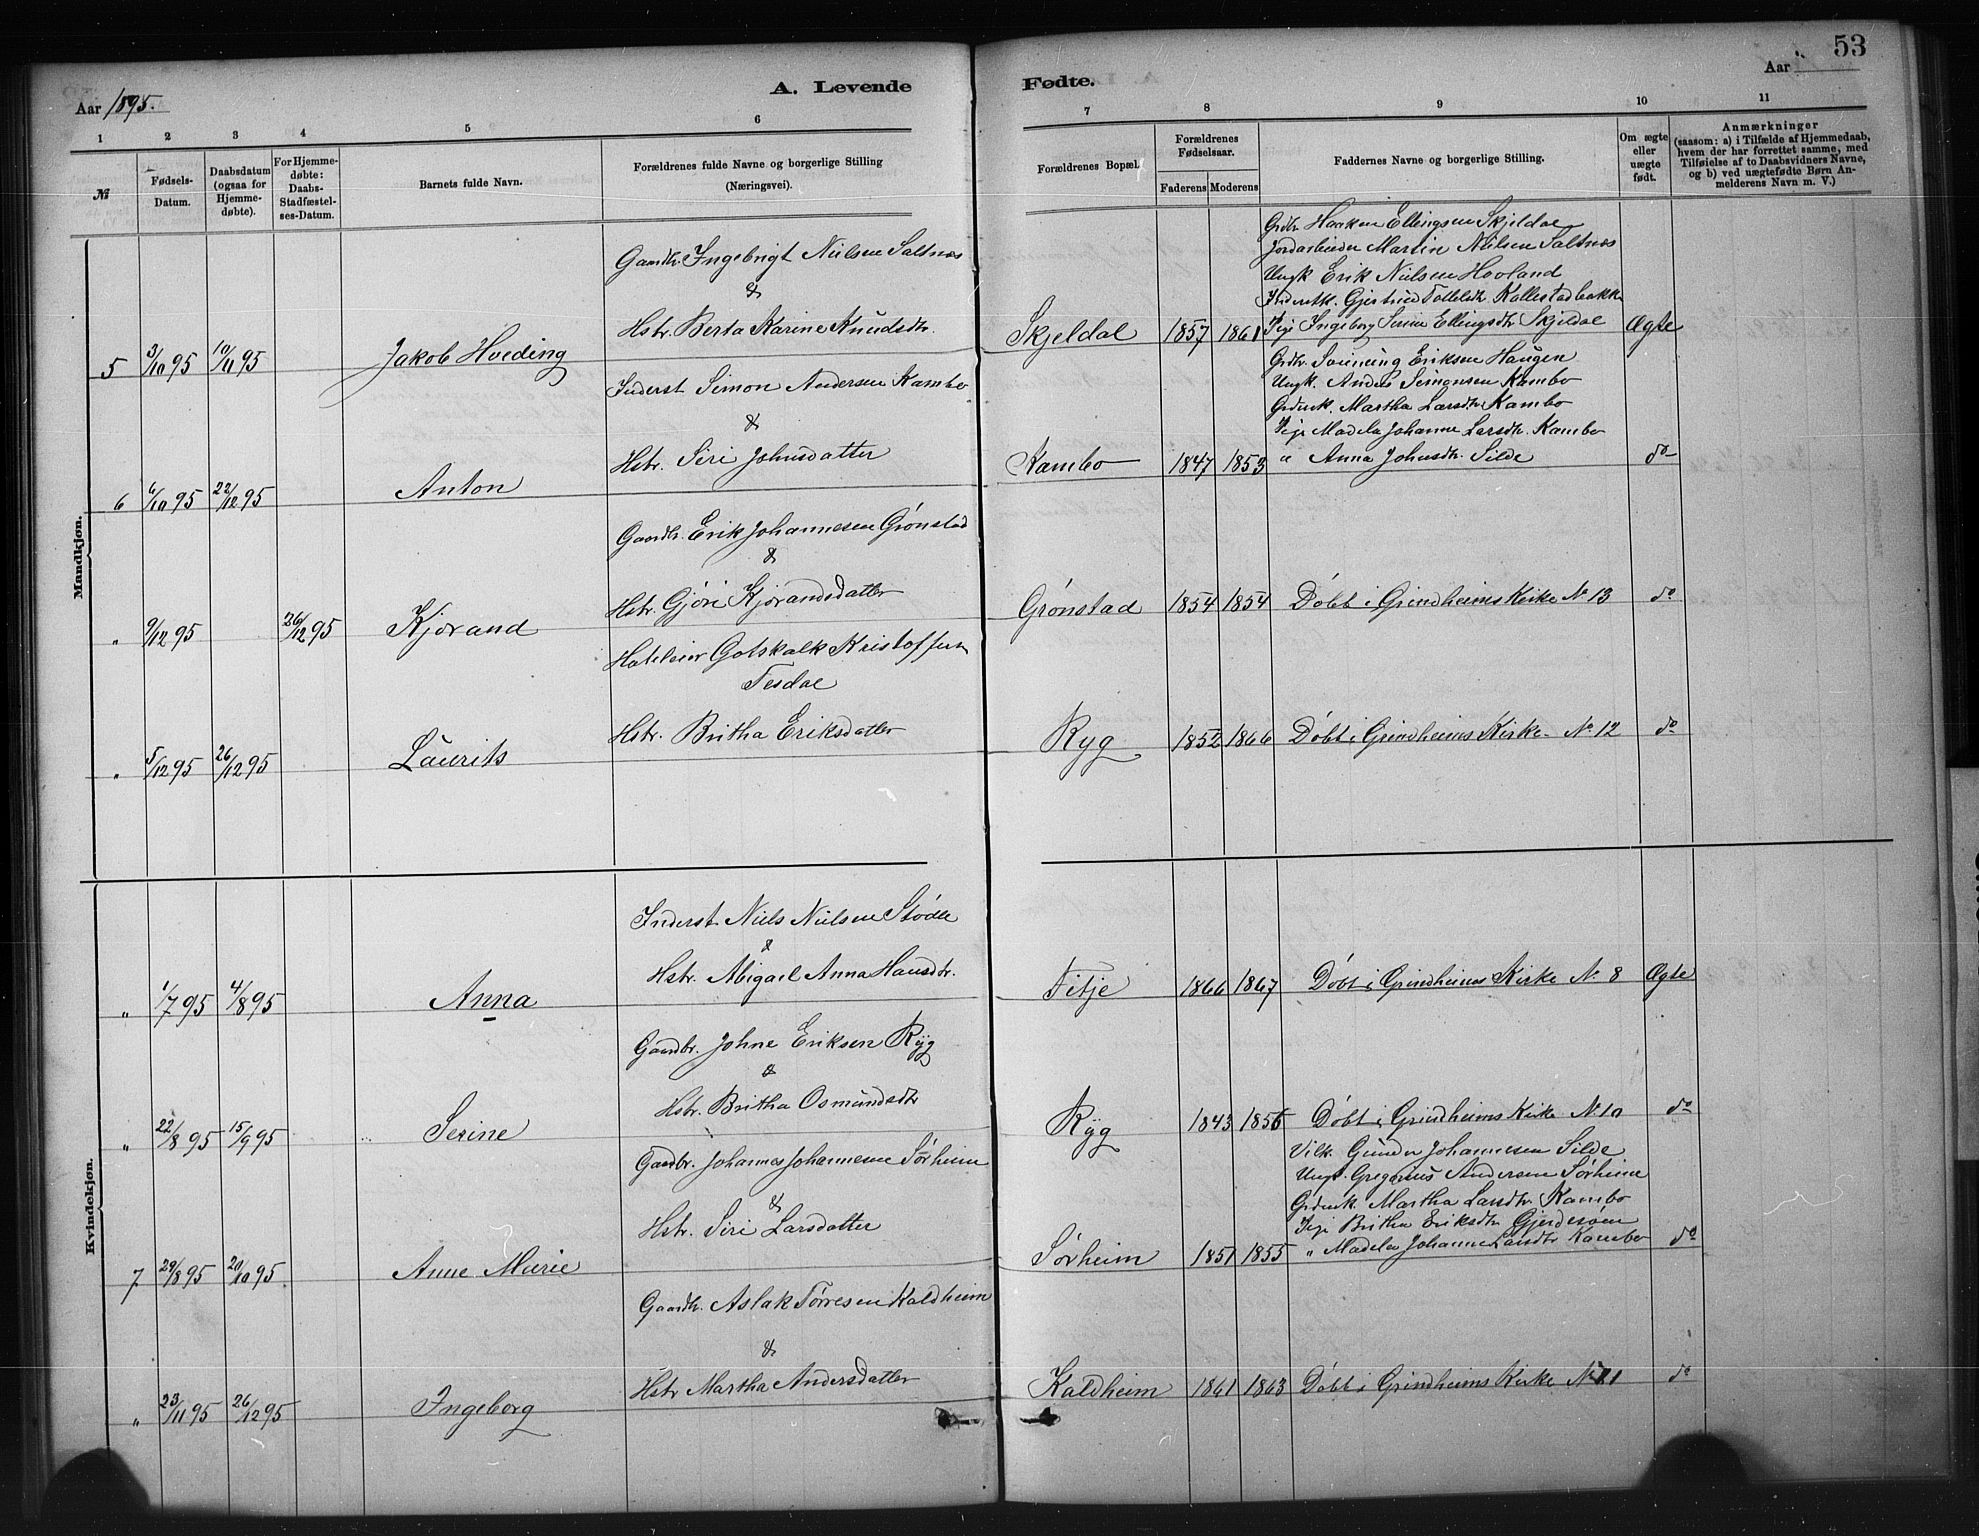 53
Aar 1895.
A. Levende
Fødte.
Aar
1 2 3 4 5 6
7 8 9 10 11
№
Fødsels-Datum.
Daabsdatum (ogsaa for Hjemme-døbte).
For Hjemme-døbte: Daabs-Stadfæstel-ses-Datum.
Barnets fulde Navn.
Forældrenes fulde Navne og borgerlige Stilling
(Næringsvei).
Forældrenes Bopæl.
Forældrenes Fødselsaar.
Faderens Moderens
Faddernes Navne og borgerlige Stilling.
Om ægte eller uægte født.
Anmærkninger
(saasom: a) i Tilfælde af Hjemmedaab, hvem der har forrettet samme, med Tilføielse af to Daabsvidners Navne, og b) ved uægtefødte Børn An-melderens Navn m. V.)
Mandkjøn.
Gaardbr. Ingebrigt Nielsen Saltnæs
&
Hstr. Berta Karine Knudsdtr.
5 3/10 95 10/11 95 Jakob Hveding
Skjeldal 1857 1861
Grdbr. Haaken Ellingsen Skjeldal
Jordarbeider Martin Nielsen Saltnæs
Ungk. Erik Nielsen Hovland
Inderstk. Gjertrud Tollelsdtr. Kallestadbakke
Pige Ingeborg Serine Ellingsdtr. Skjeldal
Ægte
Inderst Simon Andersen Kambo
&
Hstr. Siri Johnsdatter
6 6/10 95 22/12 95 Anton
Kambo 1847 1853
Grdbr. Eriksen Haugen
Ungk. Anders Simonsen Kambo
Grdmk. Martha Larsdtr. Kambo
Pige Madela Johanne Larsdtr. Kambo
" Anna Johnsdtr. Silde
do
Gaardbr. Erik Johannesen Grønstad
&
Hstr. Gjøri Kjørandsdatter
" 9/12 95 26/12 95 Kjørand
Grønstad 1854 1854 Døbt i Grindheims Kirke No 13 do
Hoteleier Gotskalk Kristoffersen
Tesdal
Hstr. Britha Eriksdatter
" 5/12 95 26/12 95 Laurits
Ryg 1852 1866 Døbt i Grindheims Kirke No 12 do
Kvindekjøn.
Inderst Niels Nielsen Stødle
&
Hstr. Abigael Anna Hansdtr.
" 1/7 95 4/8 95 Anna
Fitje 1866 1867 Døbt i Grindheims Kirke No 8 Ægte
Gaardbr. Johne Eriksen Ryg
&
Hstr. Britha Osmundsdtr
" 22/8 95 15/9 95 Serine
Ryg 1843 1856 Døbt i Grindheims Kirke No 10 do
Gaardbr. Johannes Johannesen Sørheim
&
Hstr. Siri Larsdatter
7 29/8 95 20/10 95 Anne Marie
Sørheim 1851 1855
Gunder Johannesen Silde
Ungk. Gregorius Andersen Sørheim
Grdmk. Martha Larsdtr. Kambo
Pige Britha Eriksdtr. Gjerdesøen
" Madela Johanne Larsdtr Kambo
do
Gaardbr. Aslak Tørresen Kaldheim
&
Hstr Martha Andersdatter
" 23/11 95 26/12 95 Ingeborg
Kaldheim 1861 1863 Døbt i Grindheims Kirke No 11 do